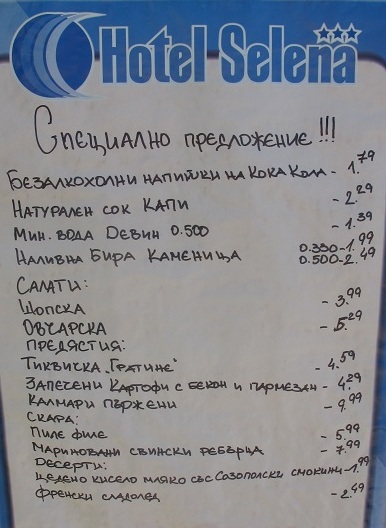 Hotel Selena
Специално предложение!!!
Безалкохолни напитки на Кока Кола - 1.79
Натурален сок Капи - 2.29
Мин. вода Девин 0.500 - 1.39
Наливна Бира Каменица 0.330-1.99
0.500-2.49
Салати:
Шопска - 3.99
Овчарска - 5.29
Предястия:
Тиквичка „Гратине" - 4.59
Запечени Картофи с бекон и пармезан - 4.29
Калмари пържени - 9.99
Скара:
Пиле филе - 5.99
Мариновани свински ребърца - 7.99
Десерти:
Цедено кисело мляко със Созополски смокини - 1.99
Френски сладолед - 2.49